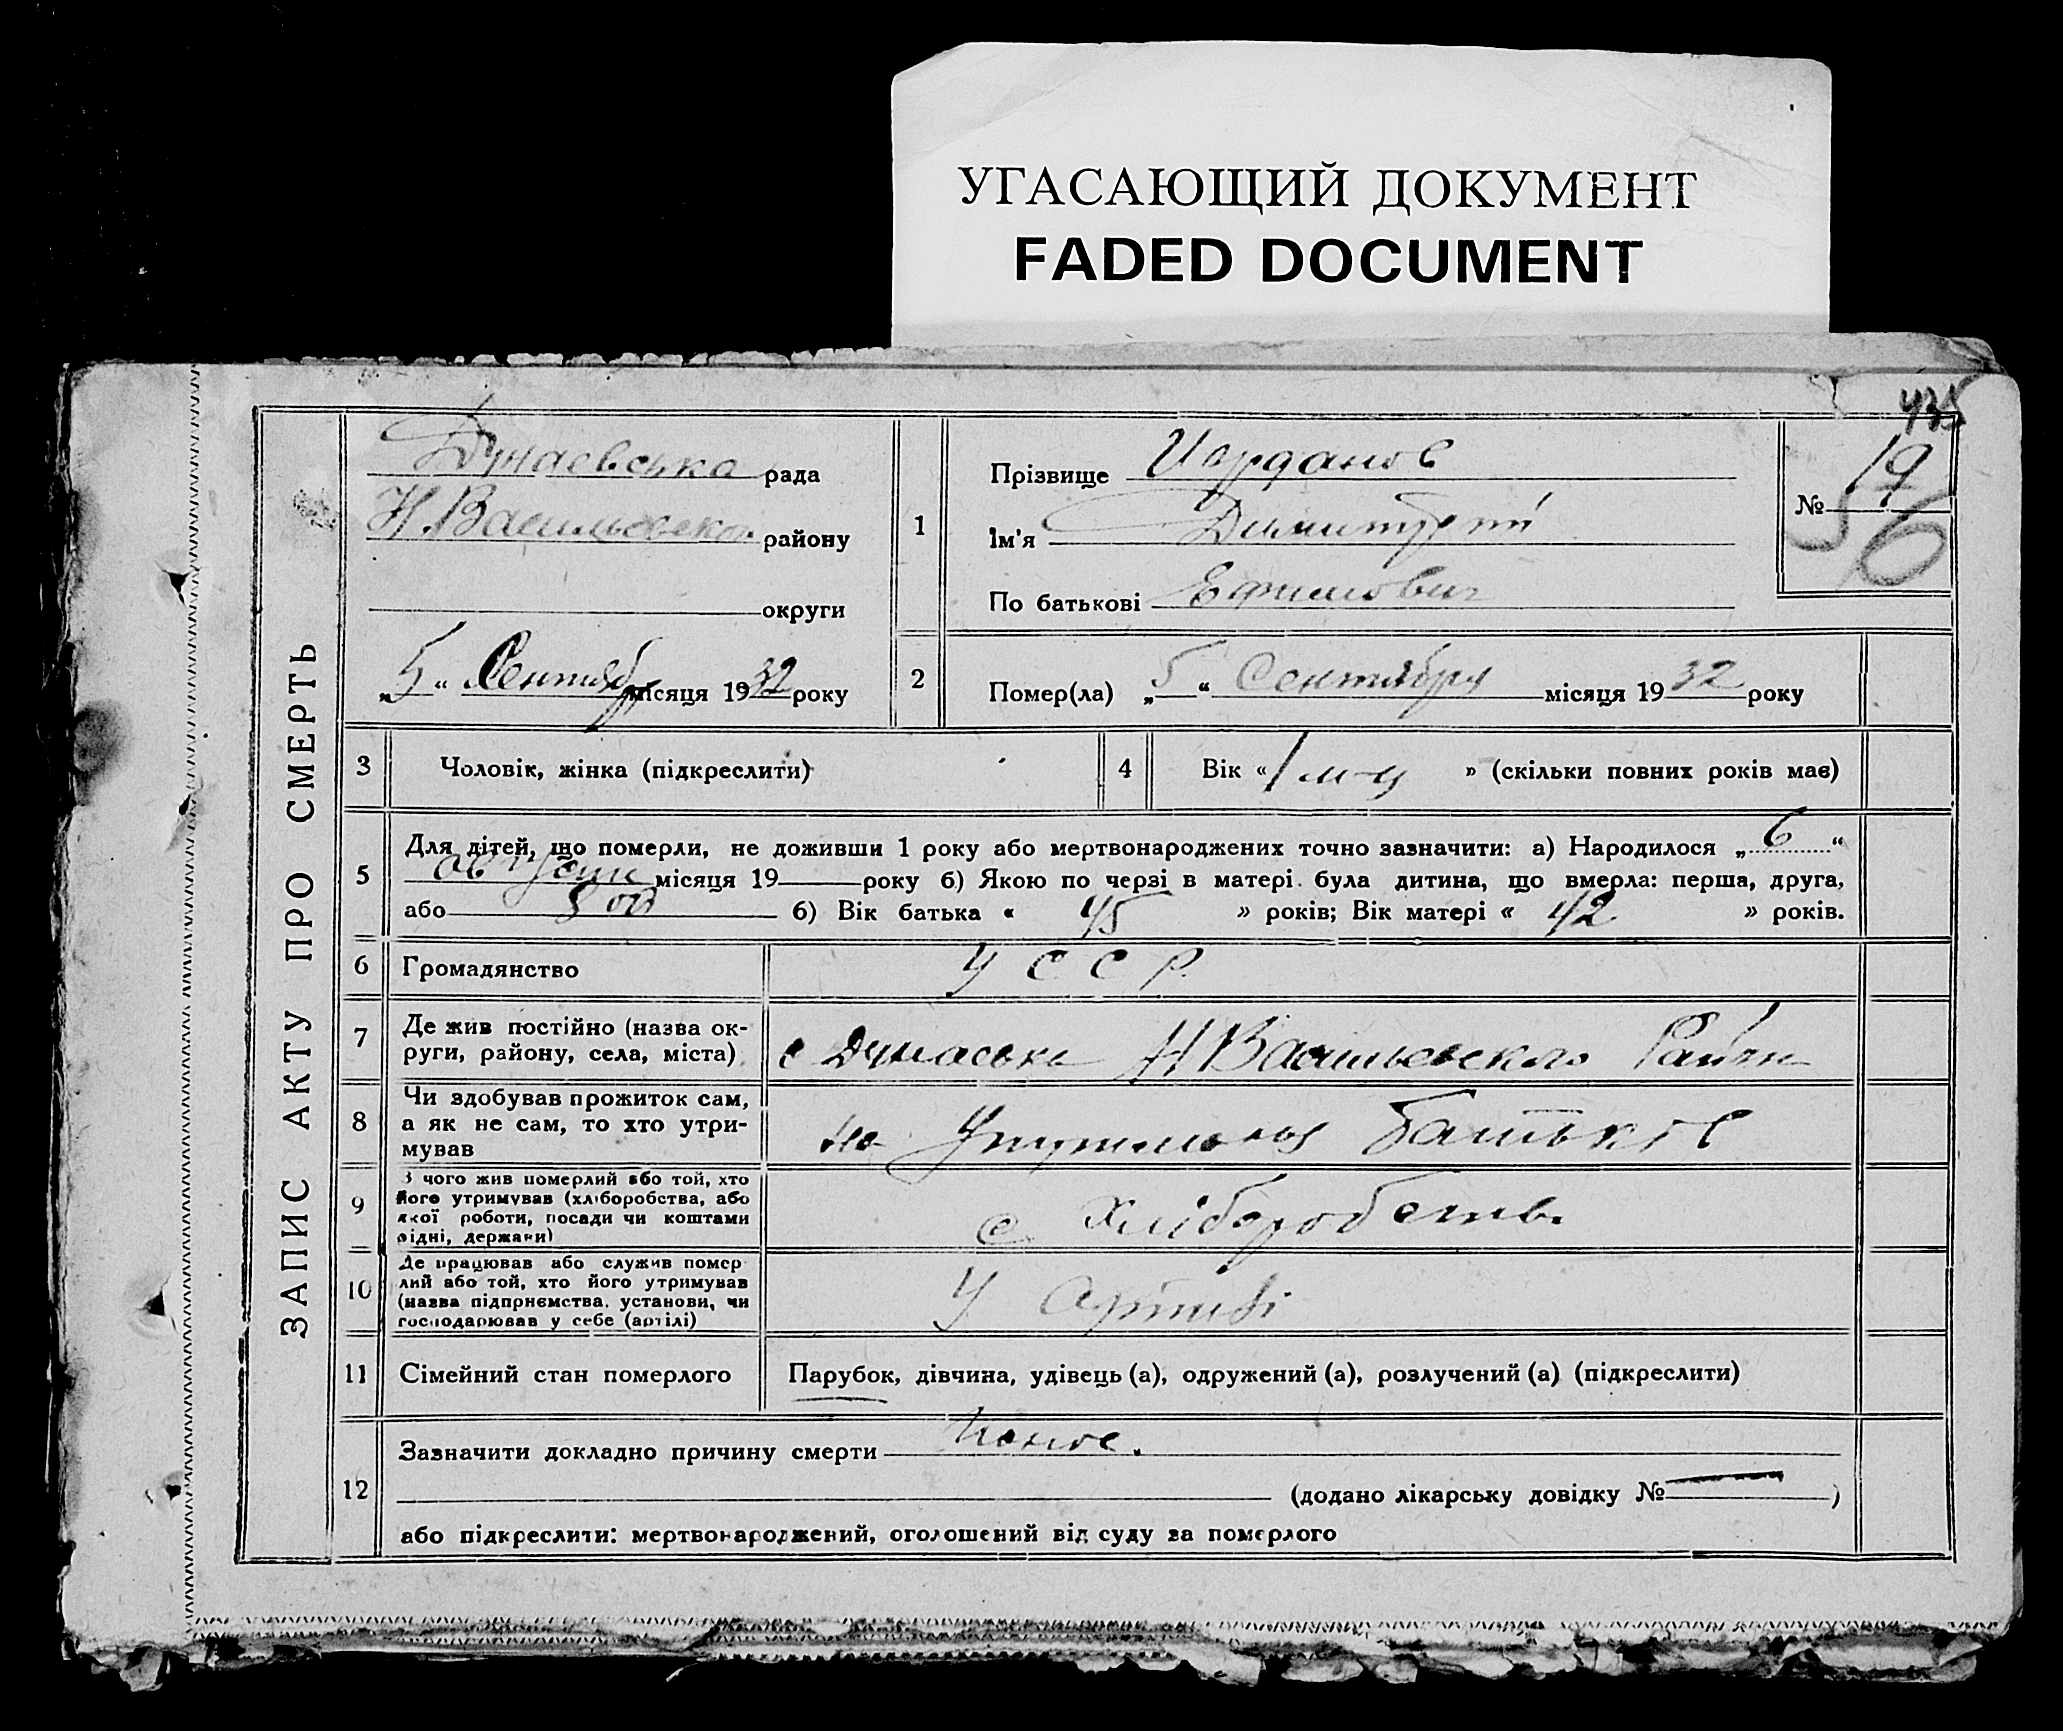 УГАСАЮЩИЙ ДОКУМЕНТ
FADED DOCUMENT
435
ЗАПИС АКТУ ПРО СМЕРТЬ
Дунаевська рада
Н.Васильевско району
округи
„5“ Сентябр місяця 1932 року
1
Прізвище Иорданов
Ім'я Димитрий
По батькові Ефимович
№ 19
56
2
Помер(ла) „5“ Сентября місяця 1932 року
3
Чоловік, жінка (підкреслити)
4
Вік « 1 м-ц » (скільки повних років має)
5
Для дітей, що померли, не доживши 1 року або мертвонароджених точно зазначити: а) Народилося „6“
августа місяця 19 року б) Якою по черзі в матері була дитина, що вмерла: перша, друга,
або 8 ой б) Вік батька « 45 » років; Вік матері « 42 » років.
6
Громадянство
У С С Р
7
Де жив постійно (назва ок-
руги, району, села, міста)
с Дунаевка Н Васильевского Район
8
Чи здобував прожиток сам,
а як не сам, то хто утри-
мував
на батьків
9
З чого жив померлий або той, хто
його утримував (хліборобства, або
якої роботи, посади чи коштами
рідні, держави)
с Хліборобств
10
Де працював або служив помер
лий або той, хто його утримував
(назва підприємства, установи, чи
господарював у себе (артілі)
У Артілі
11
Сімейний стан померлого
Парубок, дівчина, удівець (а), одружений (а), розлучений (а) (підкреслити)
12
Зазначити докладно причину смерти Понос.
(додано лікарську довідку № )
або підкреслити: мертвонароджений, оголошений від суду за померлого